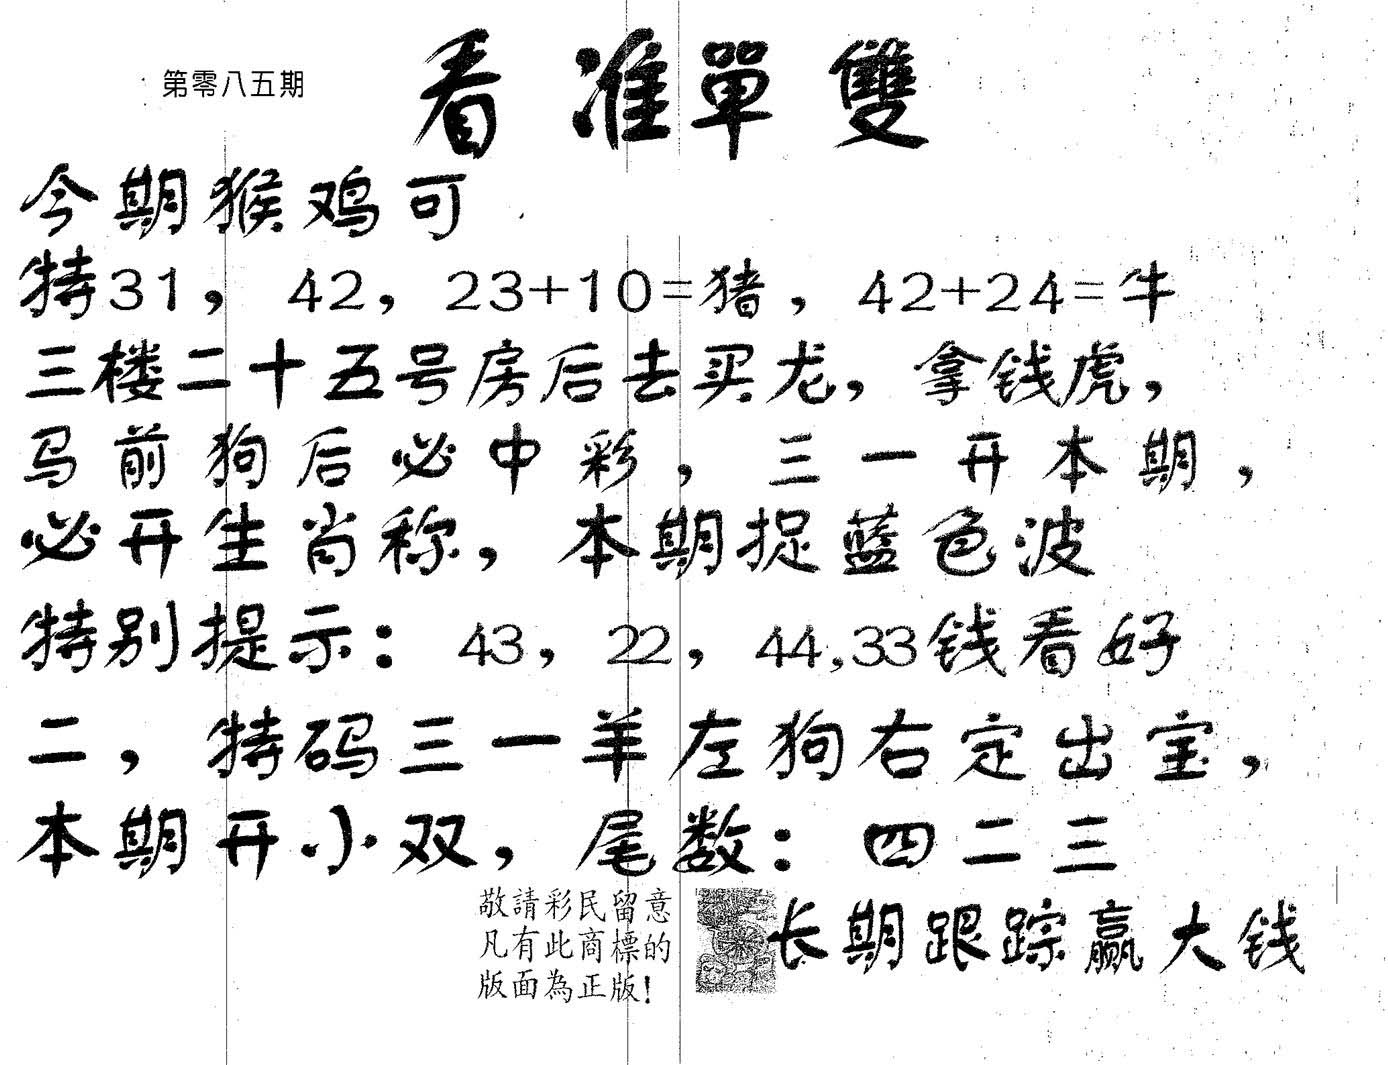 第零八五期
看准單雙
今期猴鸡可
特31，42，23+10=猪，42+24=牛
三楼二十五号房后去买龙，拿钱虎，
马前狗后必中彩，三一开本期，
必开生肖称，本期捉蓝色波
特别提示：43，22，44,33钱看好
二，特码三一羊左狗右定出宝，
本期开小双，尾数：四二三
敬請彩民留意
凡有此商標的
版面為正版!
长期跟踪赢大钱